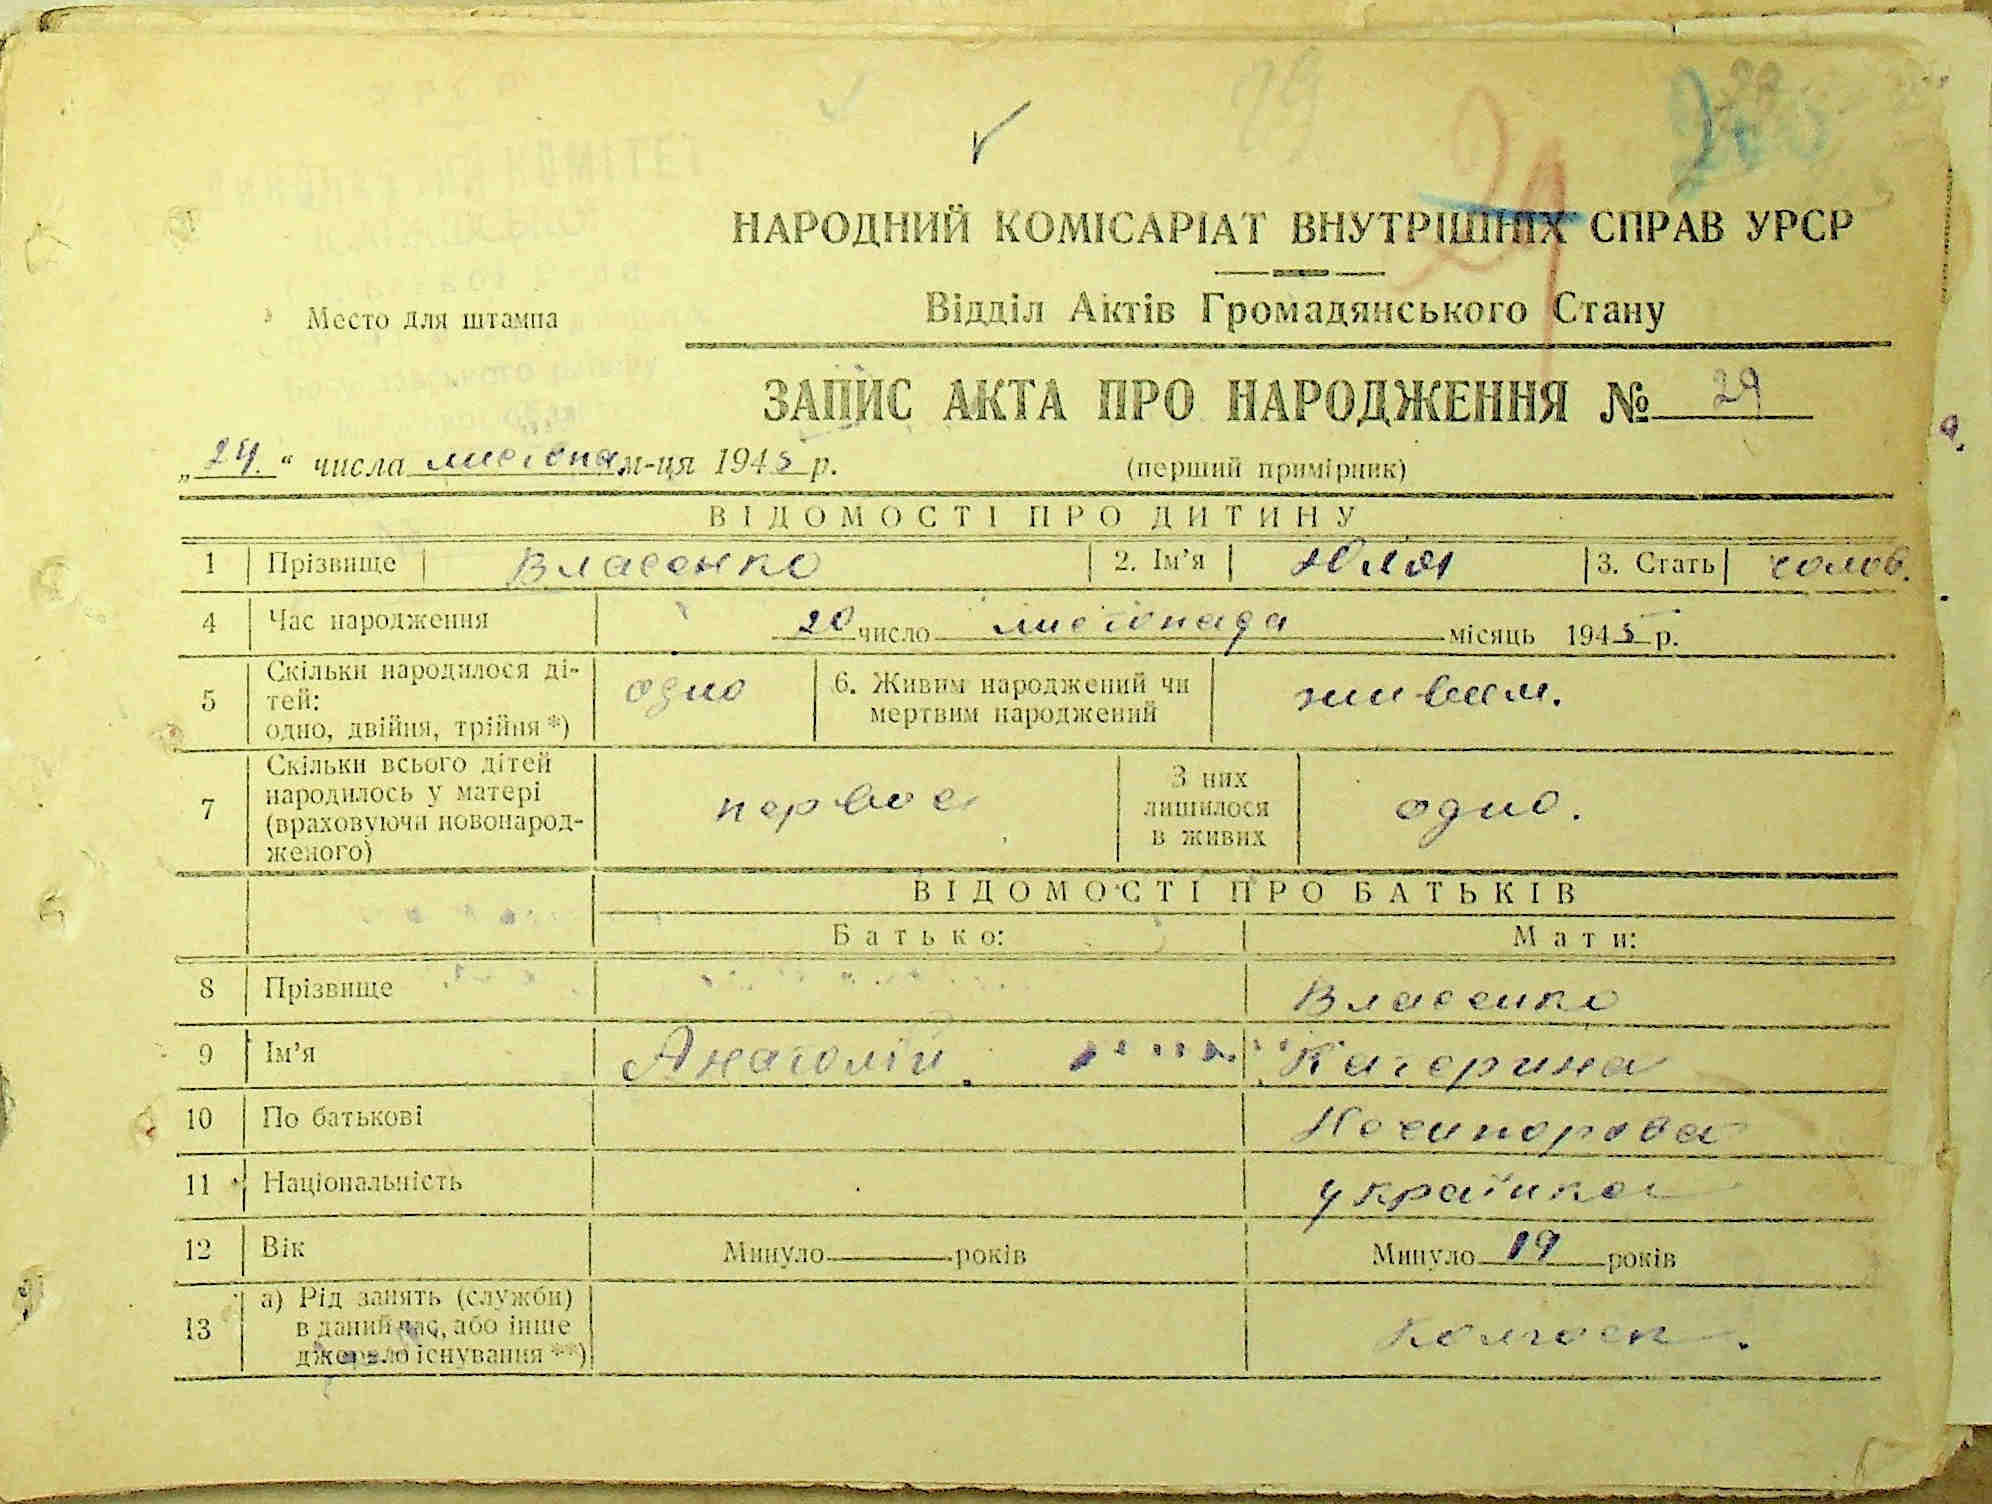 29
НАРОДНИЙ КОМІСАРІАТ ВНУТРІШНІХ СПРАВ УРСР
Место для штампа
Відділ Актів Громадянського Стану
ЗАПИС АКТА ПРО НАРОДЖЕННЯ № 29
„24.“ числа листопа м-ця 1945 р.
(перший примірник)
ВІДОМОСТІ ПРО ДИТИНУ
1 Прізвище Власенко 2. Ім'я Юля 3. Стать чолов.
4 Час народження 20 число листопада місяць 1945 р.
5 Скільки народилося ді-
тей:
одно, двійня, трійня *) одно 6. Живим народжений чи
мертвим народжений живим.
7 Скільки всього дітей
народилось у матері
(враховуючи новонарод-
женого) первое З них
лишилося
в живих одно.
ВІДОМОСТІ ПРО БАТЬКІВ
Батько: Мати:
8 Прізвище Власенко
9 Ім'я Анатолій. Катерина
10 По батькові
11 Національність українка
12 Вік Минуло років Минуло 19 років
13 а) Рід занять (служби)
в даний час, або інше
джерело існування **) Колгосп.